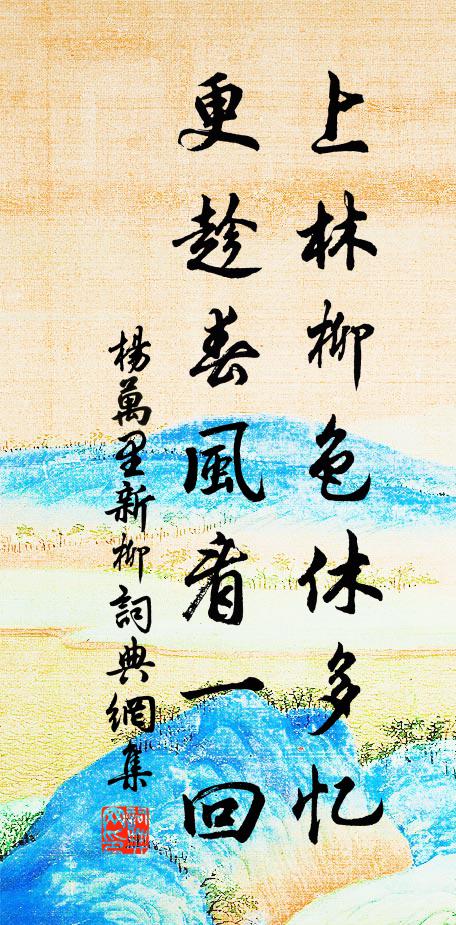 上林柳色休多忆
更趁春風看一回
楊萬里新柳詞典網集